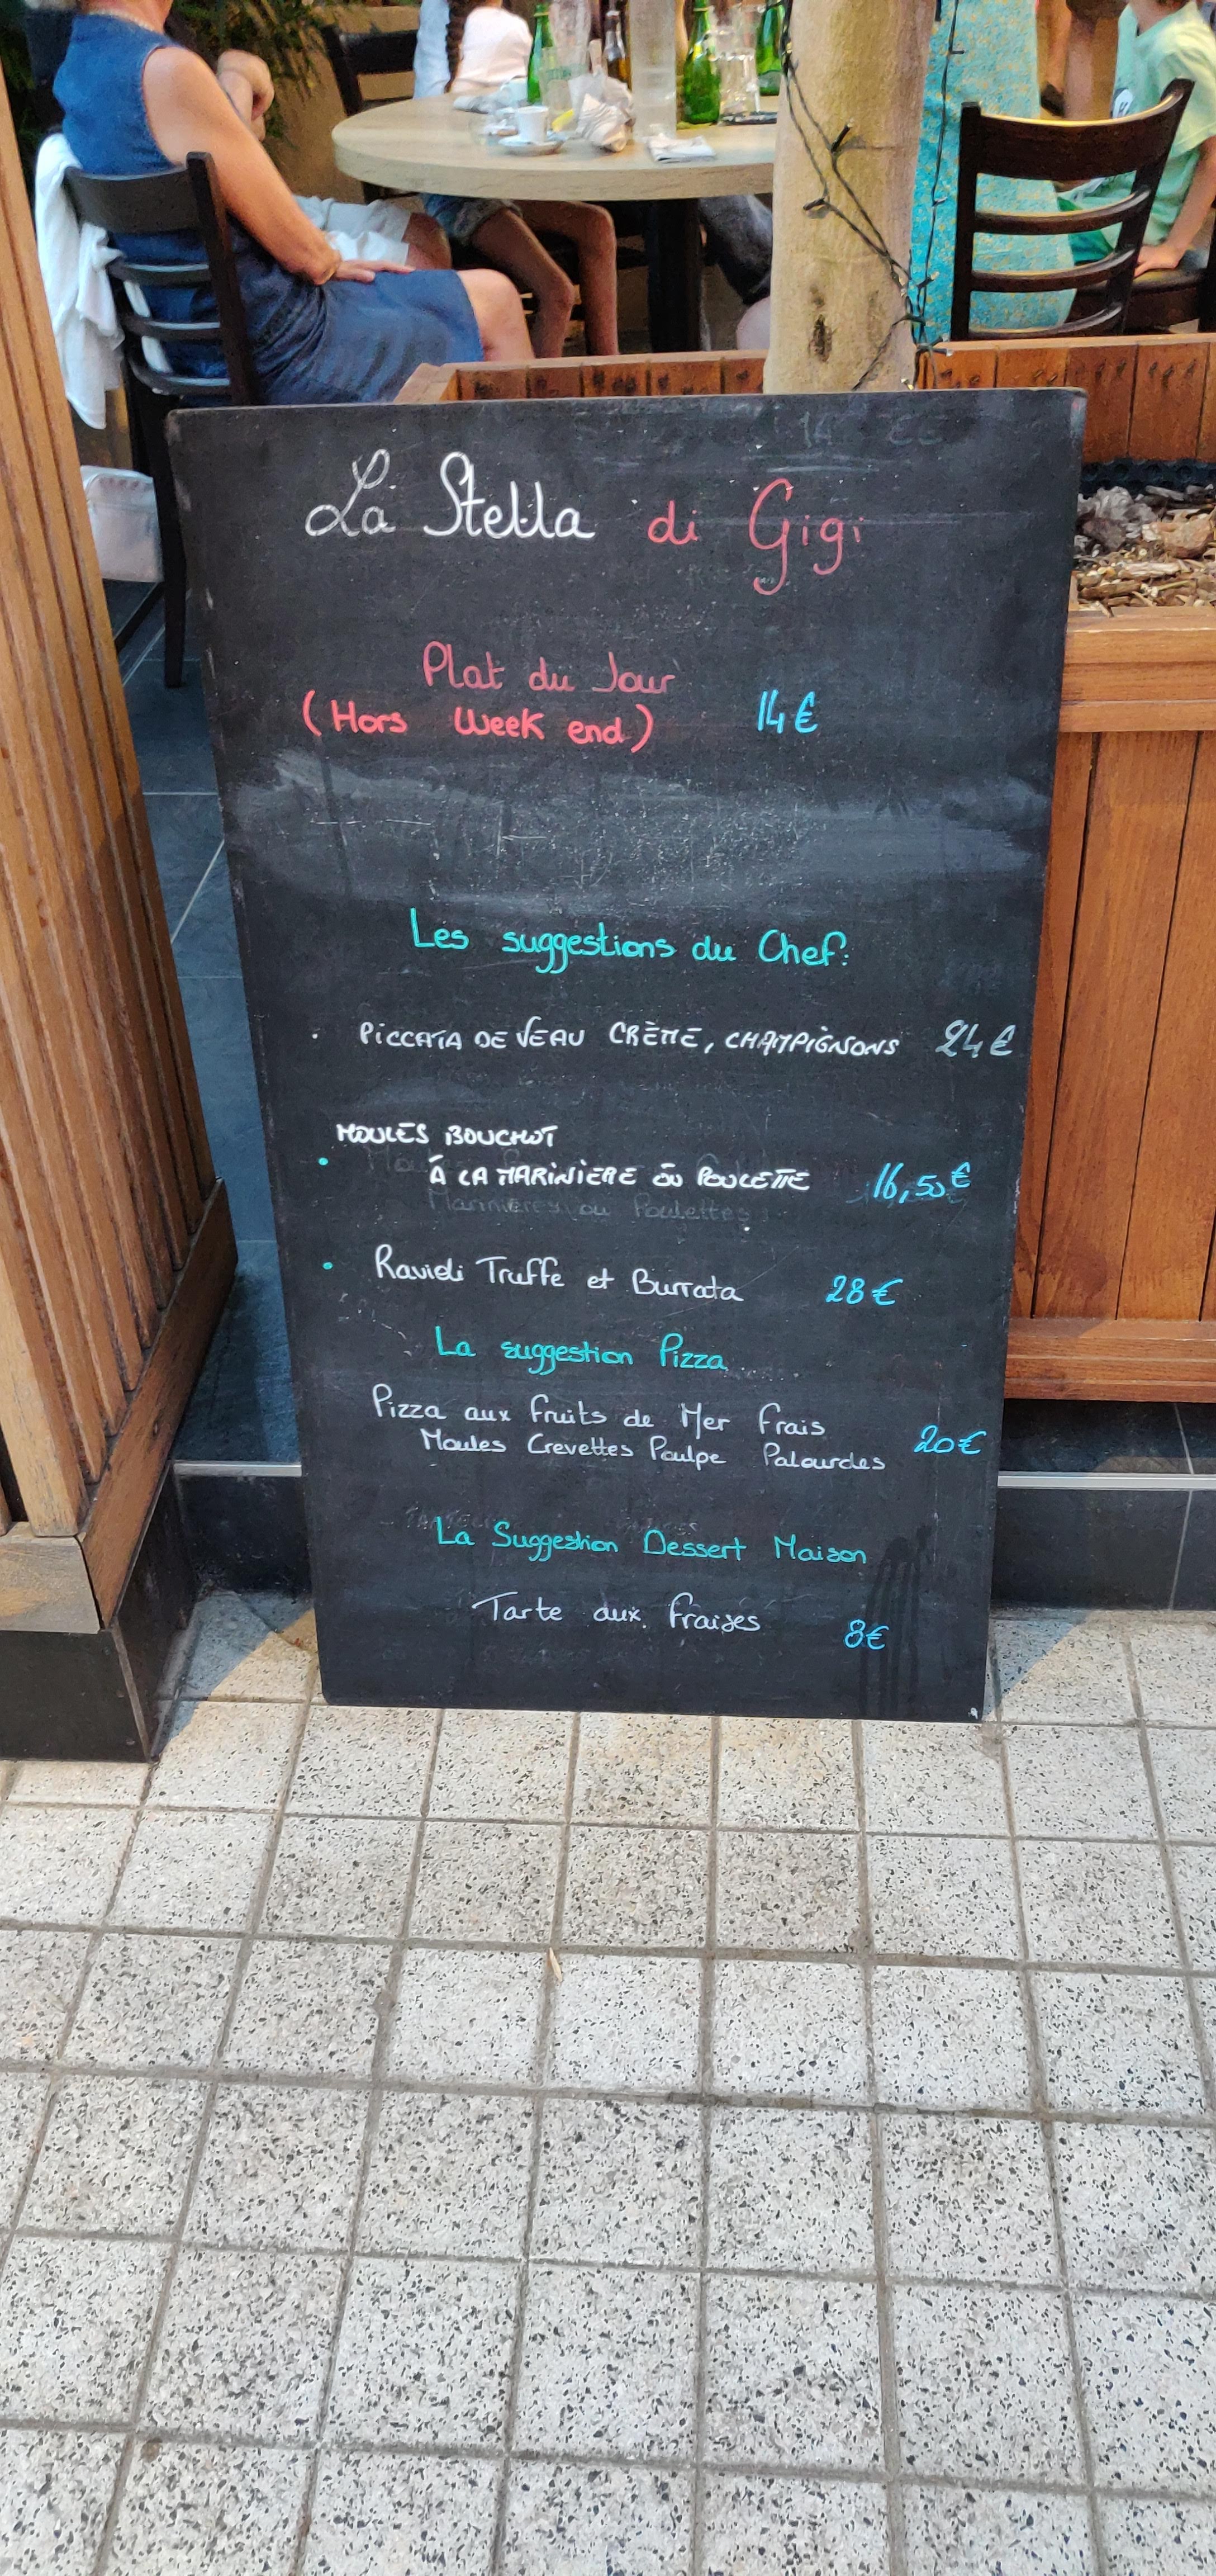 La Stella di Gigi
Plat du Jour
(Hors Week end) 14€
Les suggestions du Chef:
· PICCATA DE VEAU CRÈME, CHAMPIGNONS 24€
MOULES BOUCHOT
· À LA MARINIERE OU POULETTE 16,50€
· Ravioli Truffe et Burrata 28€
La suggestion Pizza
Pizza aux fruits de Mer frais
Moules Crevettes Poulpe Palourdes 20€
La Suggestion Dessert Maison
Tarte aux fraises
8€